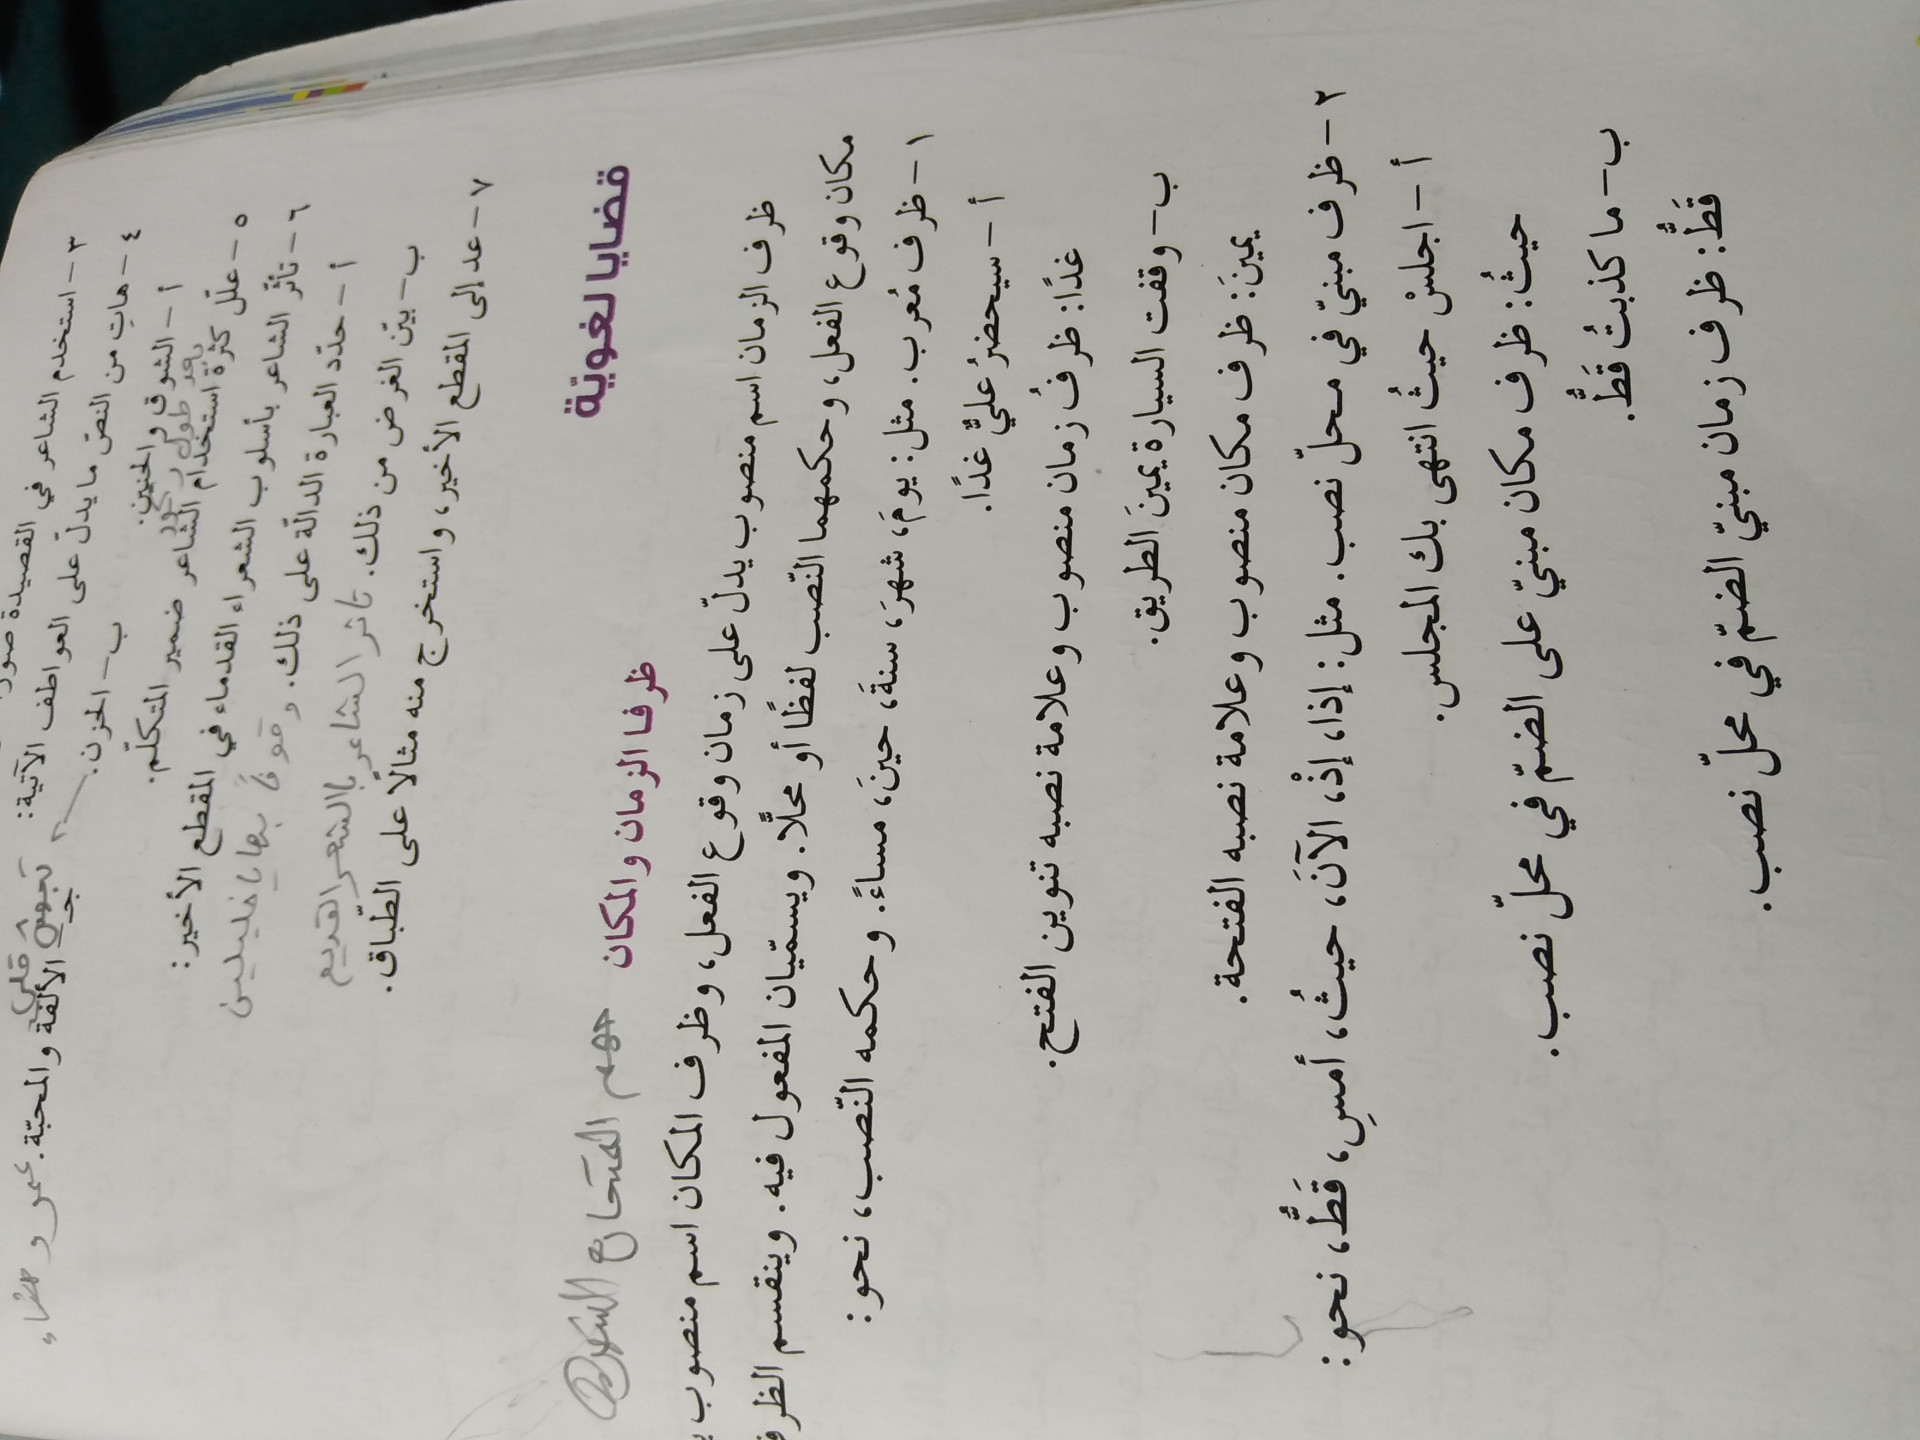 ٣- استخدم الشاعر في القصيدة صور
٤- هاتِ من النصّ ما يدلّ على العواطف الآتية:
أ - الشوق والحنين. ب- الحزن. الألفة والمحبّة.
٥- علّل كثرة استخدام الشاعر ضمير المتكلّم.
٦- تأثّر الشاعر بأسلوب الشعراء القدماء في المقطع الأخير:
أ - حدّد العبارة الدالّة على ذلك.
ب- بيّن الغرض من ذلك. تاثر الشاعر بالشعر القديم
٧- عد إلى المقطع الأخير، واستخرج منه مثالًا على الطّباق.
قضايا لغويّة
ظرفا الزمان والمكان
ظرف الزمان اسم منصوب يدلّ على زمان وقوع الفعل، وظرف المكان اسم منصوب
مكان وقوع الفعل، وحكمهما النّصب لفظًا أو محلًّا. ويسمّيان المفعول فيه. وينقسم الظرف
١- ظرف مُعرب. مثل: يومَ، شهرَ، سنةَ، حينَ، مساءً. وحكمه النّصب، نحو:
أ - سيحضرُ عليٌّ غدًا.
غدًا: ظرفُ زمان منصوب وعلامة نصبه تنوين الفتح.
ب- وقفت السيارة يمينَ الطريق.
يمينَ: ظرف مكان منصوب وعلامة نصبه الفتحة.
٢- ظرف مبنيّ في محلّ نصب. مثل: إذا، إذْ، الآنَ، حيثُ، أمسِ، قَطُّ، نحو:
أ - اجلسْ حيثُ انتهى بك المجلس.
حيثُ: ظرف مكان مبنيّ على الضمّ في محلّ نصب.
ب- ما كذبتُ قَطُّ.
قَطُّ: ظرف زمان مبنيّ الضمّ في محلّ نصب.